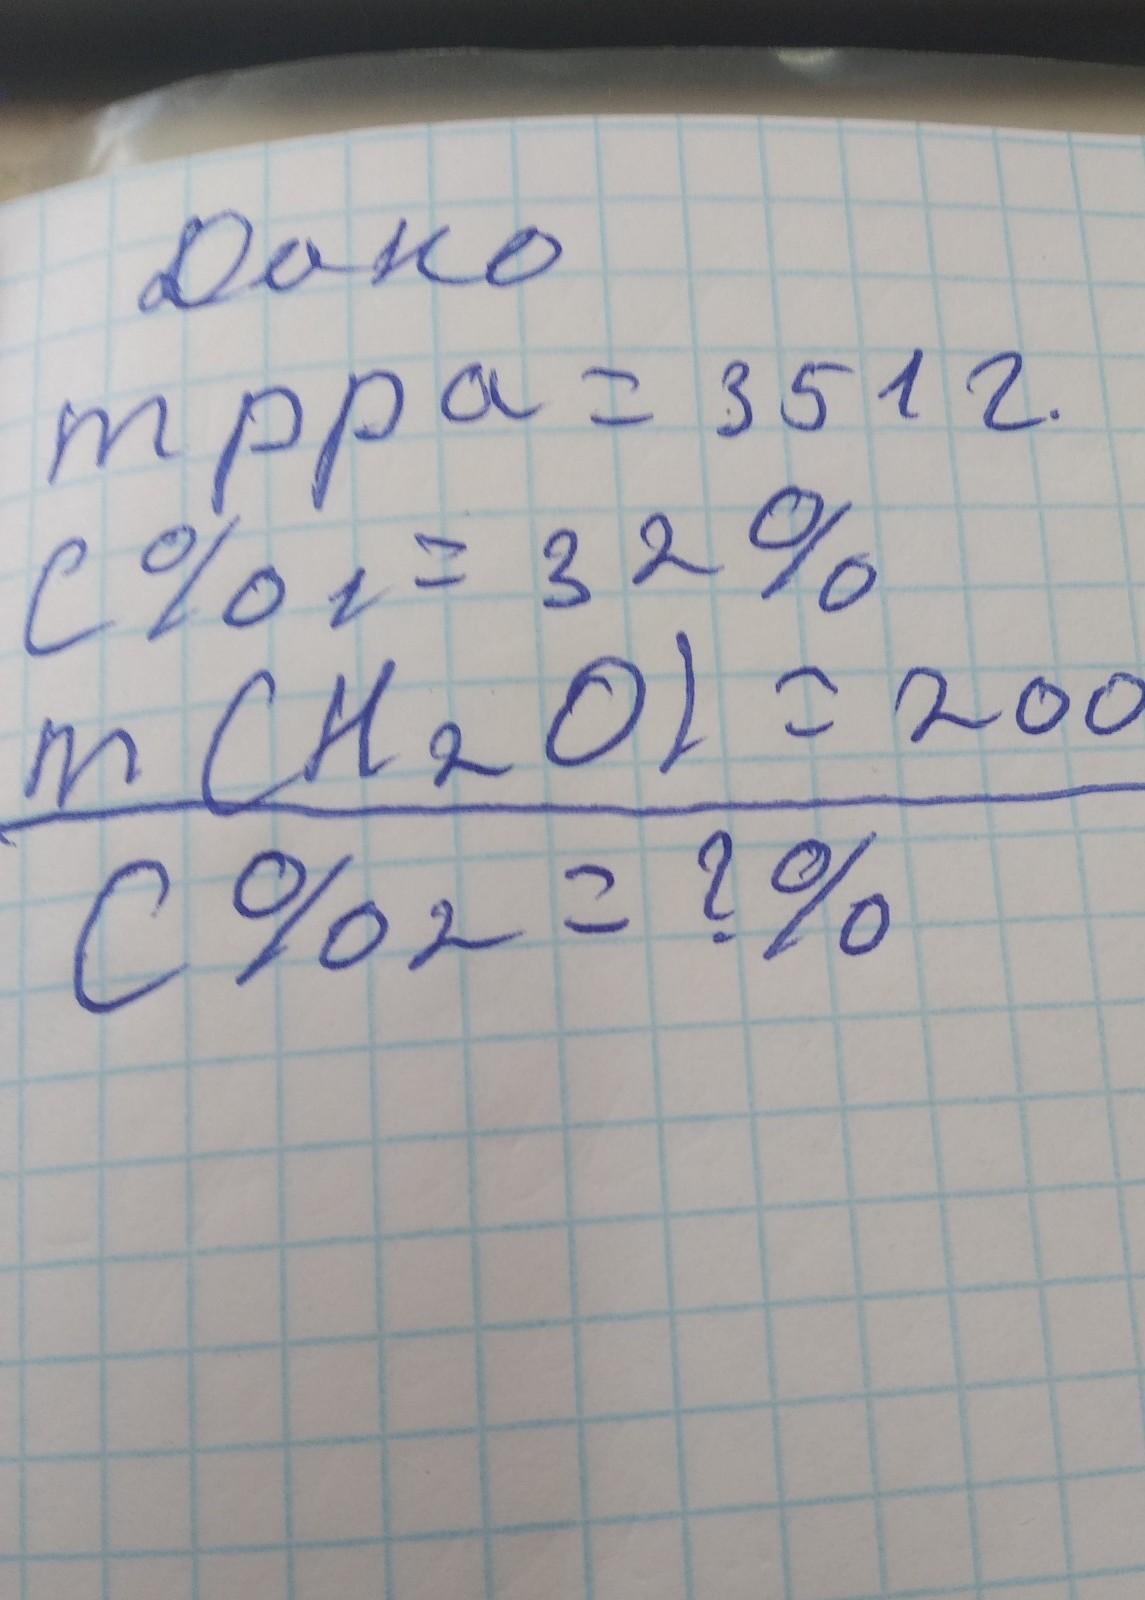 Дано
m рра = 351 г.
C%1 = 32%
m(H2O) = 200
C%2 = ?%